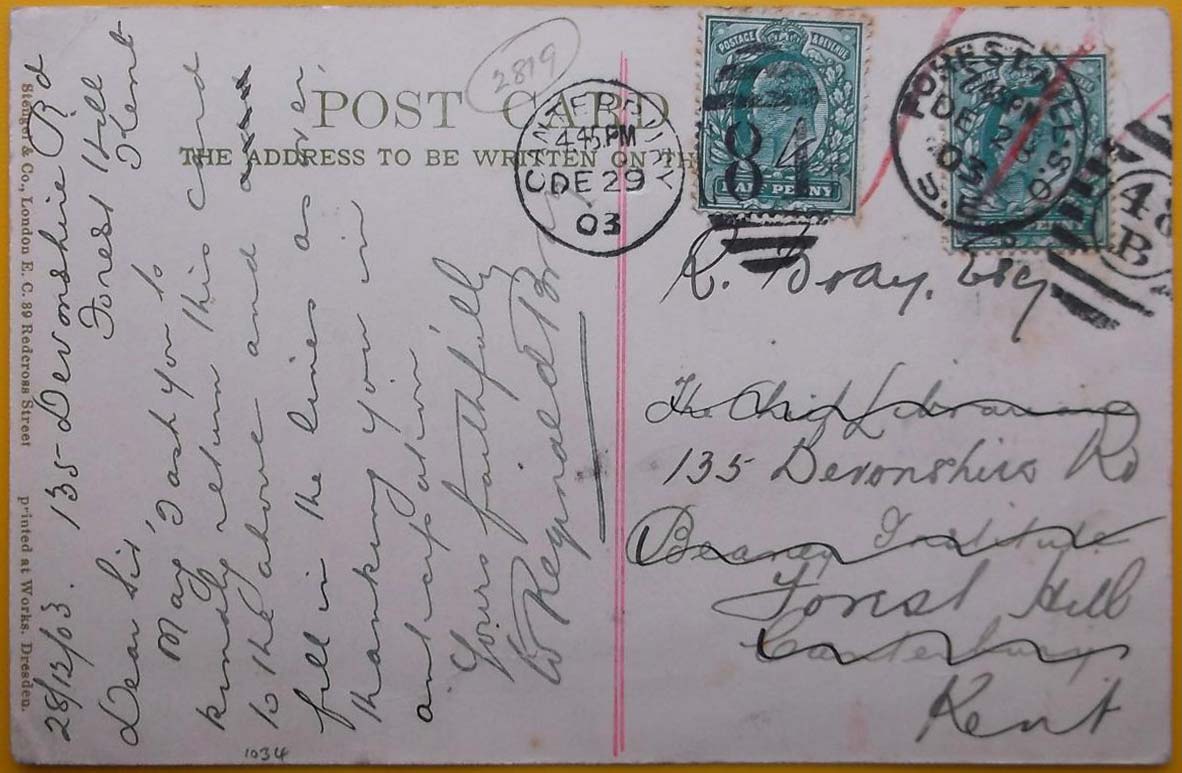 Stengel & Co., London E. C. 39 Redcross Street printed at Works, Dresden.
28/12/03. 135 Devonshire Rd
Forest Hill
Kent
Dear Sir,
May I ask you to
kindly return this card
to the above and
fill in the lines as over,
thanking you in
anticipation
Yours faithfully
W Reginald Br
1034
2819
POST CARD
THE ADDRESS TO BE WRITTEN ON TH
CANTERBURY
4.45 PM
DE 29
03
POSTAGE & REVENUE
HALF PENNY
84
FOREST HILL S.O.
7.45 PM
DE 2
03
S.E.
48
B
R. Bray. Esq
The Chief Librarian
135 Devonshire Rd
Beaney Institute
Forest Hill
Canterbury
Kent